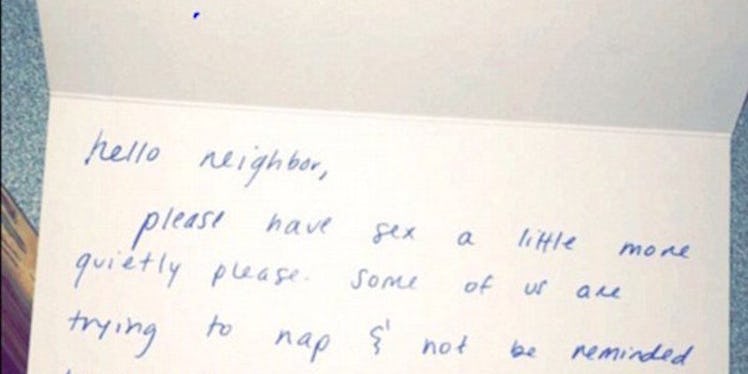 hello neighbor,
please have sex a little more
quietly please. Some of us are
trying to nap & not be reminded